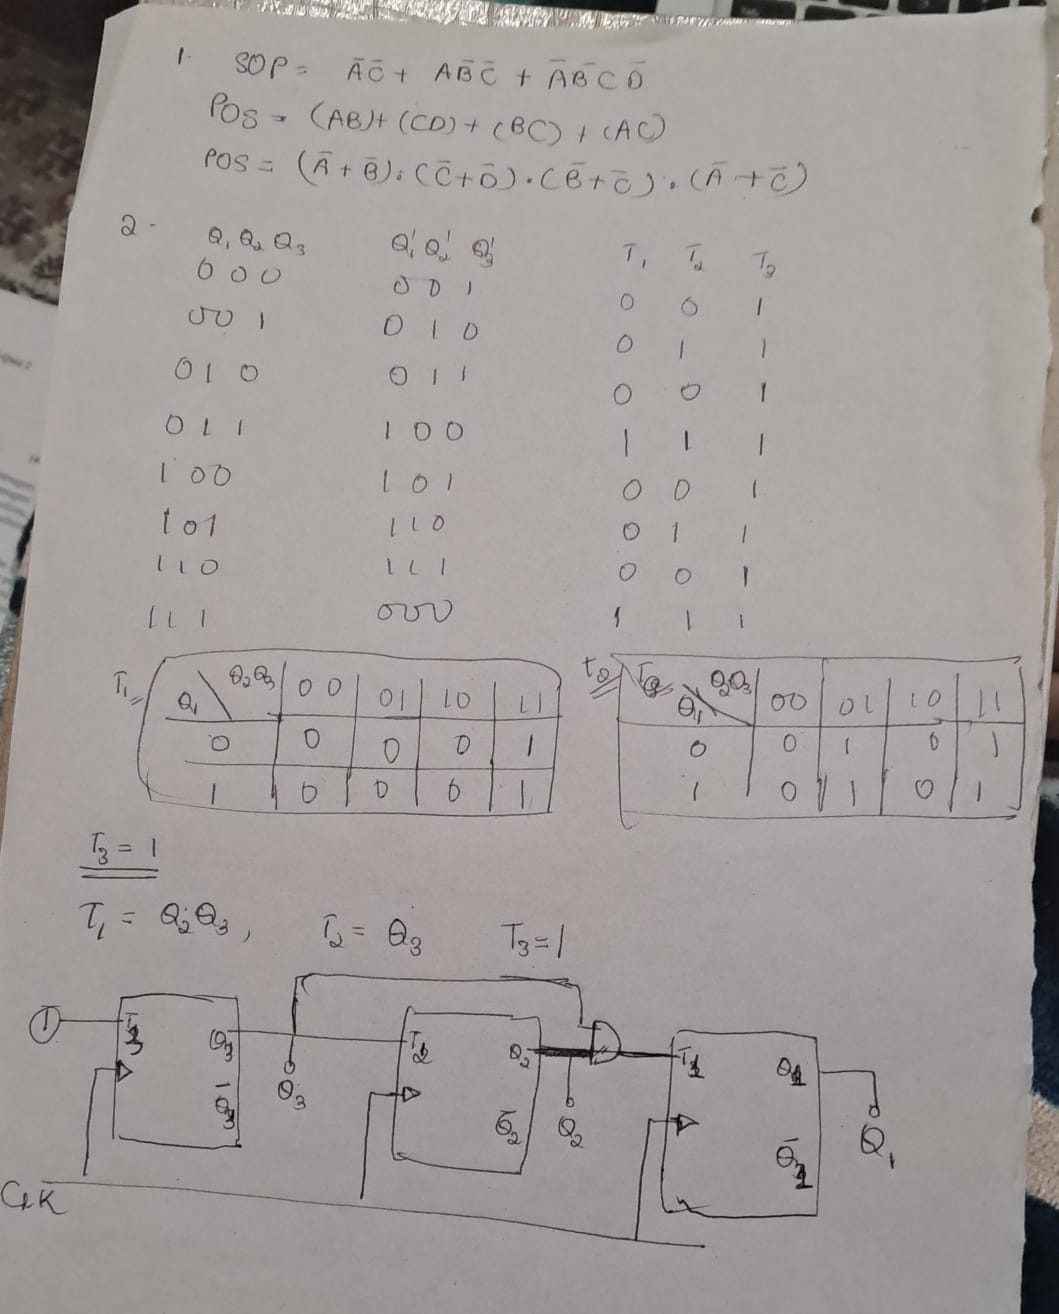 1. SOP = ĀC̄ + AB̄C̄ + ĀB̄CD̄
POS = (AB)+(CD)+(BC)+(AC)
POS = (Ā+B̄).(C̄+D̄).(B̄+C̄).(Ā+C̄)
2- Q₁ Q₂ Q₃ Q₁' Q₂' Q₃' T₁ T₂ T₃
0 0 0 0 0 1 0 0 1
0 0 1 0 1 0 0 1 1
0 1 0 0 1 1 0 0 1
0 1 1 1 0 0 1 1 1
1 0 0 1 0 1 0 0 1
1 0 1 1 1 0 0 1 1
1 1 0 1 1 1 0 0 1
1 1 1 0 0 0 1 1 1
T₁ Q₁ Q₂Q₃ 00 01 10 11
0 0 0 0 1
1 0 0 0 1
T₂ Q₁ Q₂Q₃ 00 01 10 11
0 0 1 0 1
1 0 1 0 1
T₃ = 1
T₁ = Q₂Q₃, T₂ = Q₃ T₃ = 1
1 T₃ Q₃ T₂ Q₂ T₁ Q₁
Q̄₃ Q₃ Q̄₂ Q₂ Q̄₁ Q₁
CLK